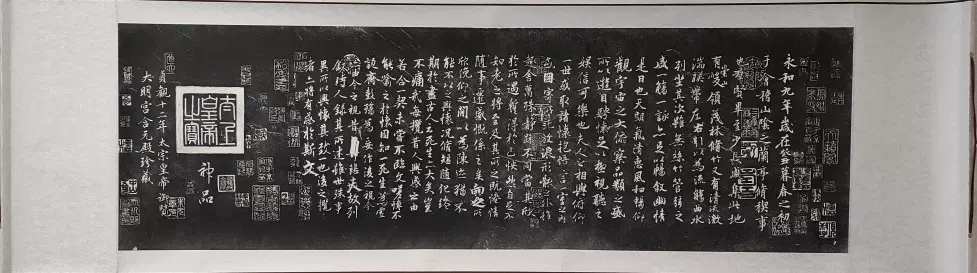 永和九年歲在癸丑暮春之初
于會稽山陰之蘭亭脩稧事
也羣賢畢至少長咸集此地
有峻領茂林脩竹又有清流激
湍暎帶左右引以為流觴曲水
列坐其次雖無絲竹管弦之
盛一觴一詠亦足以暢敘幽情
是日也天朗氣清惠風和暢仰
觀宇宙之大俯察品類之盛
所以遊目騁懷足以極視聽之
娛信可樂也夫人之相與俯仰
一世或取諸懷抱悟言一室之內
因寄所託放浪形骸之外雖
趣舍萬殊靜躁不同當其欣
於所遇暫得於己快然自足不
知老之將至及其所之既惓情
隨事遷感慨係之矣向之所
欣俛仰之間以為陳跡猶不
能不以之興懷況脩短隨化終
期於盡古人云死生亦大矣豈
不痛哉每攬昔人興感之由
若合一契未嘗不臨文嗟悼不
能喻之於懷固知一死生為虛
誕齊彭殤為妄作後之視今
亦由今之視昔悲夫故列
敘時人錄其所述雖世殊事
異所以興懷其致一也後之攬
者亦將有感於斯文
神品
貞觀十二年太宗皇帝御覽
大明宮含元殿珍藏